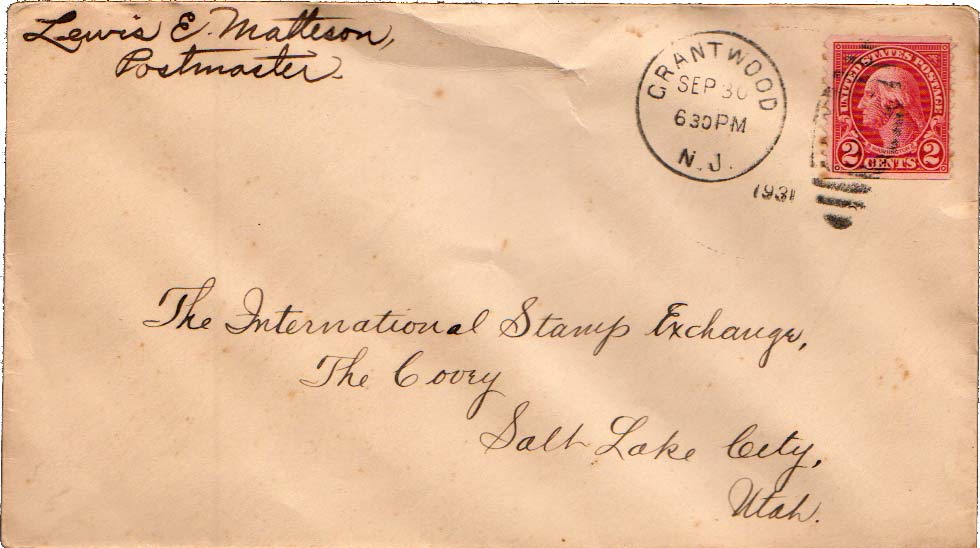 Lewis E. Matteson,
Postmaster.
GRANTWOOD
SEP 30
630PM
N.J.
1931
UNITED STATES POSTAGE
WASHINGTON
2 CENTS 2
The International Stamp Exchange,
The Covey
Salt Lake City,
Utah.